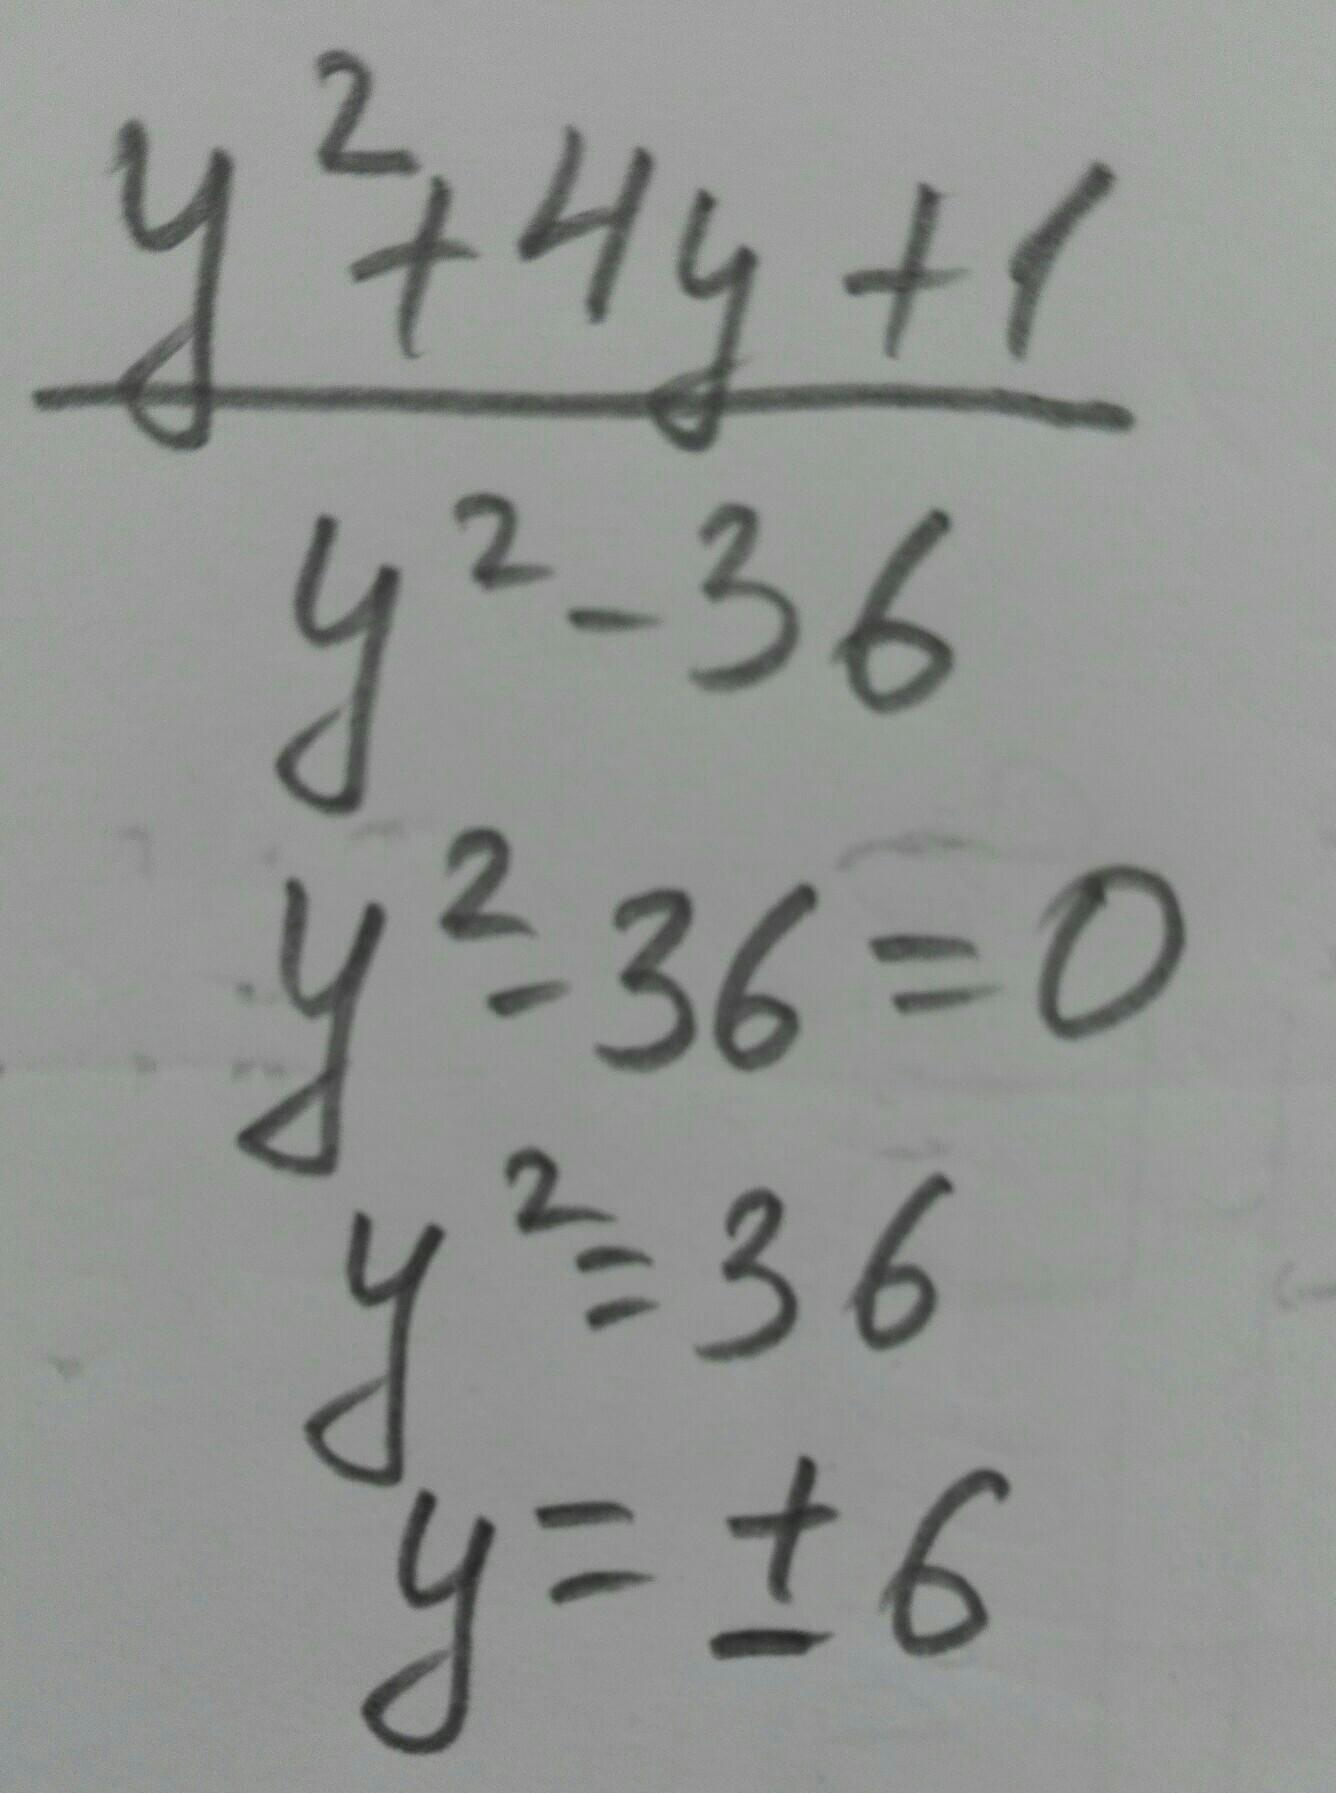 y²+4y+1
y²-36
y²-36=0
y²=36
y=±6